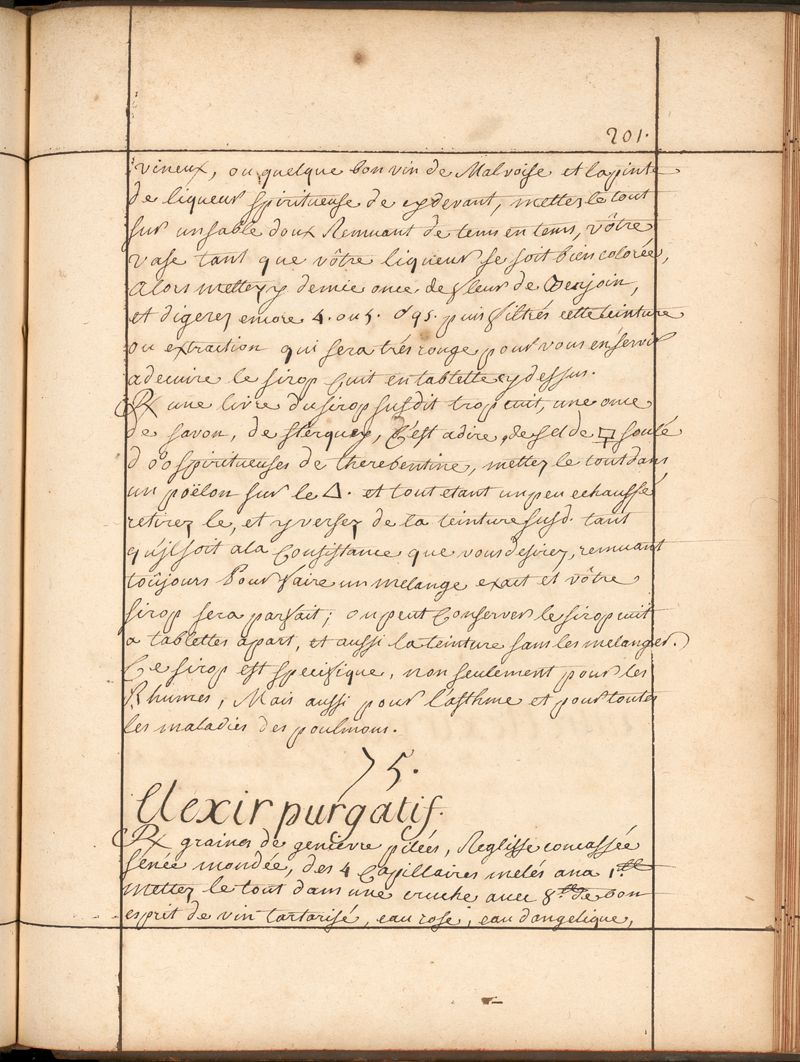 201.
vineux, ou quelque bon vin de Malvoise et la pinte
de liqueur spiritueuse de cydevant, mettez le tout
sur un sable doux Remuant de tems en tems, vôtre
vase tant que vôtre liqueur se soit bien colorée,
alors mettez y demie once de fleur de Benjoin,
et digerez encore 4. ou 5. puis filtrés cette teinture
ou extraction qui sera trés rouge pour vous en servir
a decuire le sirop Cuit en tablette cy dessus.
℞ une livre du sirop susdit trop cuit, une once
de savon, de sterquey, C'est adire, de sel de soulé
d'oo spiritueuses de therebentine, mettez le tout dans
un poëlon sur le △. et tout etant un peu echauffé
retirez le, et y versez de la teinture susd. tant
qu'jl soit a la Consistance que vous desirez, remuant
toûjours Pour faire un melange exact et vôtre
sirop sera parfait; on peut Conserver le sirop cuit
a tablettes apart, et aussi la teinture sans les melanger.
Ce sirop est specifique, non seulement pour les
Rhumes, Mais aussi pour l'asthme et pour toutes
les maladies des poulmons.
75.
Elexir purgatif.
℞ graines de genièvre pilées, Reglisse concassée
senée mondée, des 4 Capillaires melés ana 1.ll
mettez le tout dans une cruche avec 8.ll de bon
esprit de vin tartarisé, eau rose, eau d'angelique,